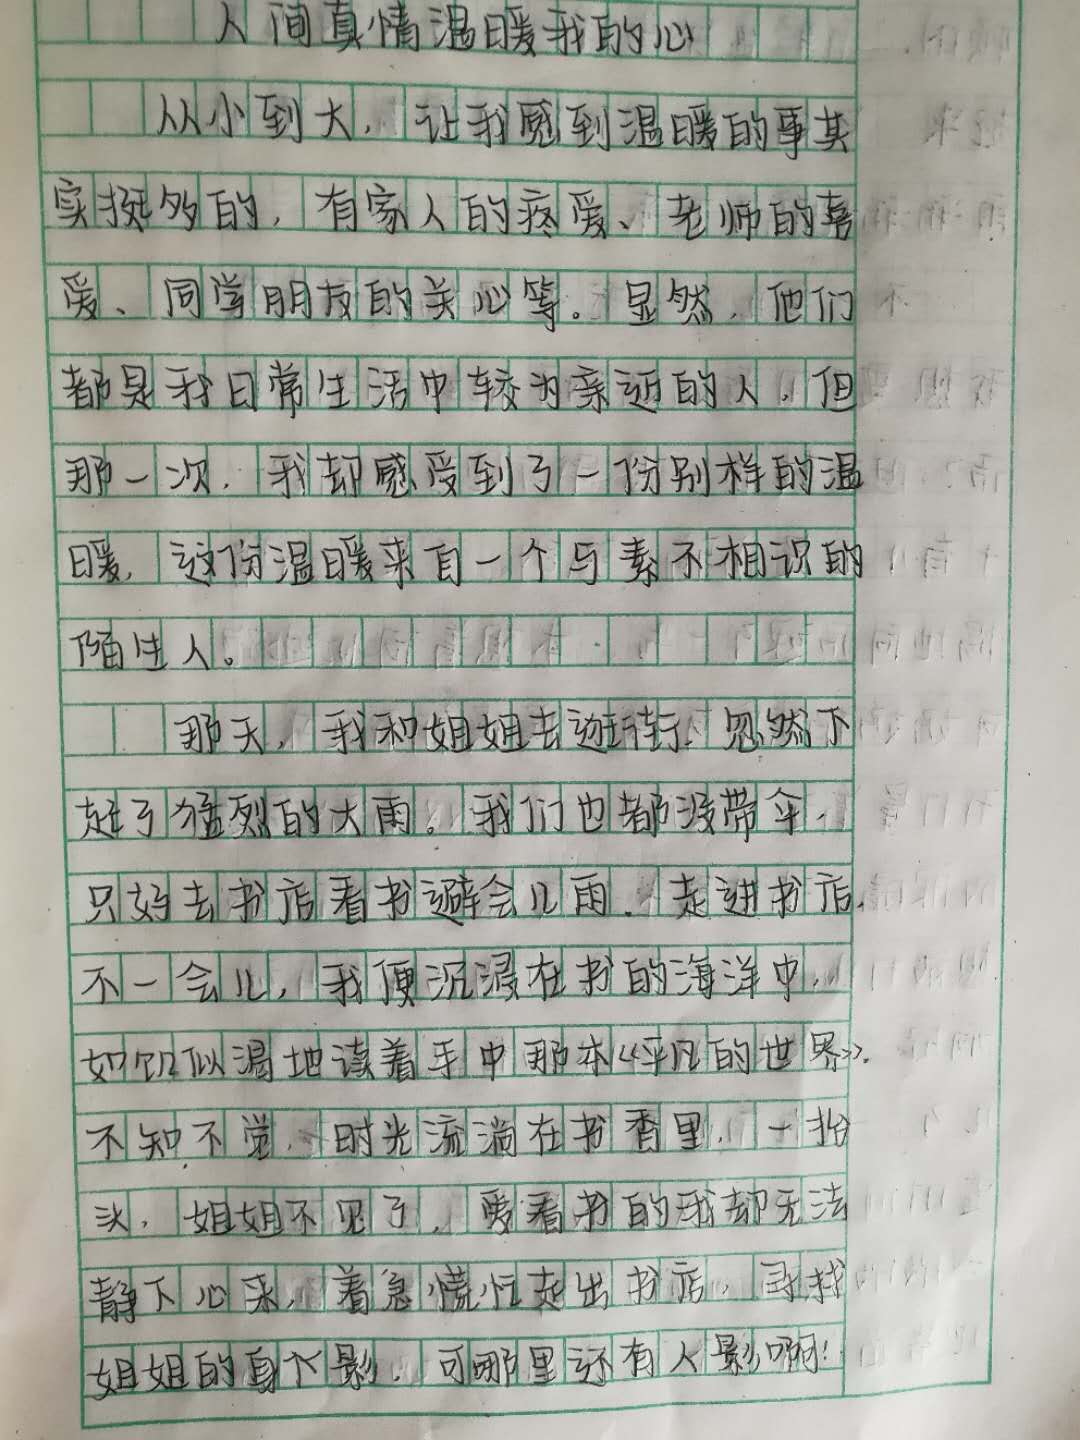 人间真情温暖我的心
从小到大，让我感到温暖的事其
实挺多的，有家人的疼爱、老师的喜
爱、同学朋友的关心等。显然，他们
都是我日常生活中较为亲近的人，但
那一次，我却感受到了一份别样的温
暖，这份温暖来自一个与素不相识的
陌生人。
那天，我和姐姐去逛街，忽然下
起了猛烈的大雨。我们也都没带伞，
只好去书店看书避会儿雨。走进书店，
不一会儿，我便沉浸在书的海洋中，
如饥似渴地读着手中那本《平凡的世界》。
不知不觉，时光流淌在书香里，一抬
头，姐姐不见了，爱看书的我却无法
静下心来，着急慌忙走出书店，寻找
姐姐的身影，可哪里还有人影啊！